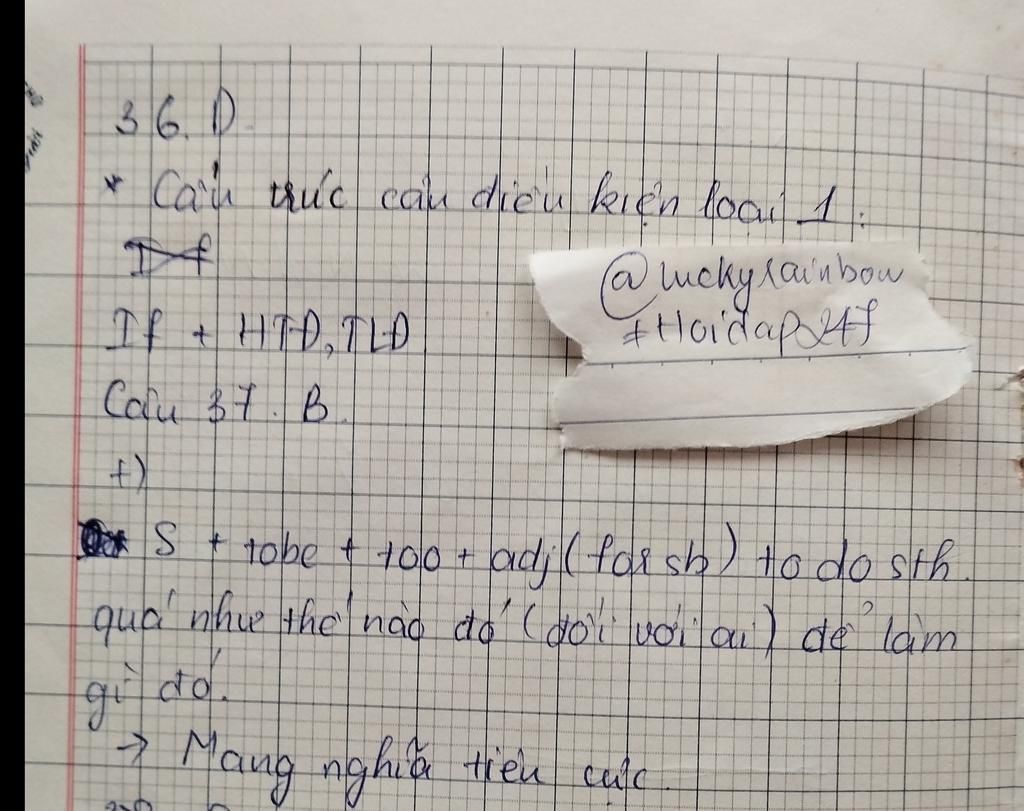 36. D.
* Cấu trúc câu điều kiện loại 1:
If
@luckyrainbow
#Hoidap247
If + HTD, TLD
Câu 37. B.
+)
* S + tobe + too + adj (for sb) to do sth.
quá như thế nào đó (đối với ai) để làm
gì đó.
→ Mang nghĩa tiêu cực.